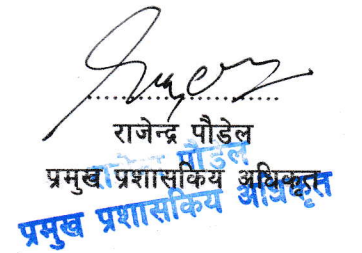 राजेन्द्र पौडेल
प्रमुख प्रशासकिय अधिकृत
राजेन्द्र पौडेल
प्रमुख प्रशासकिय अधिकृत